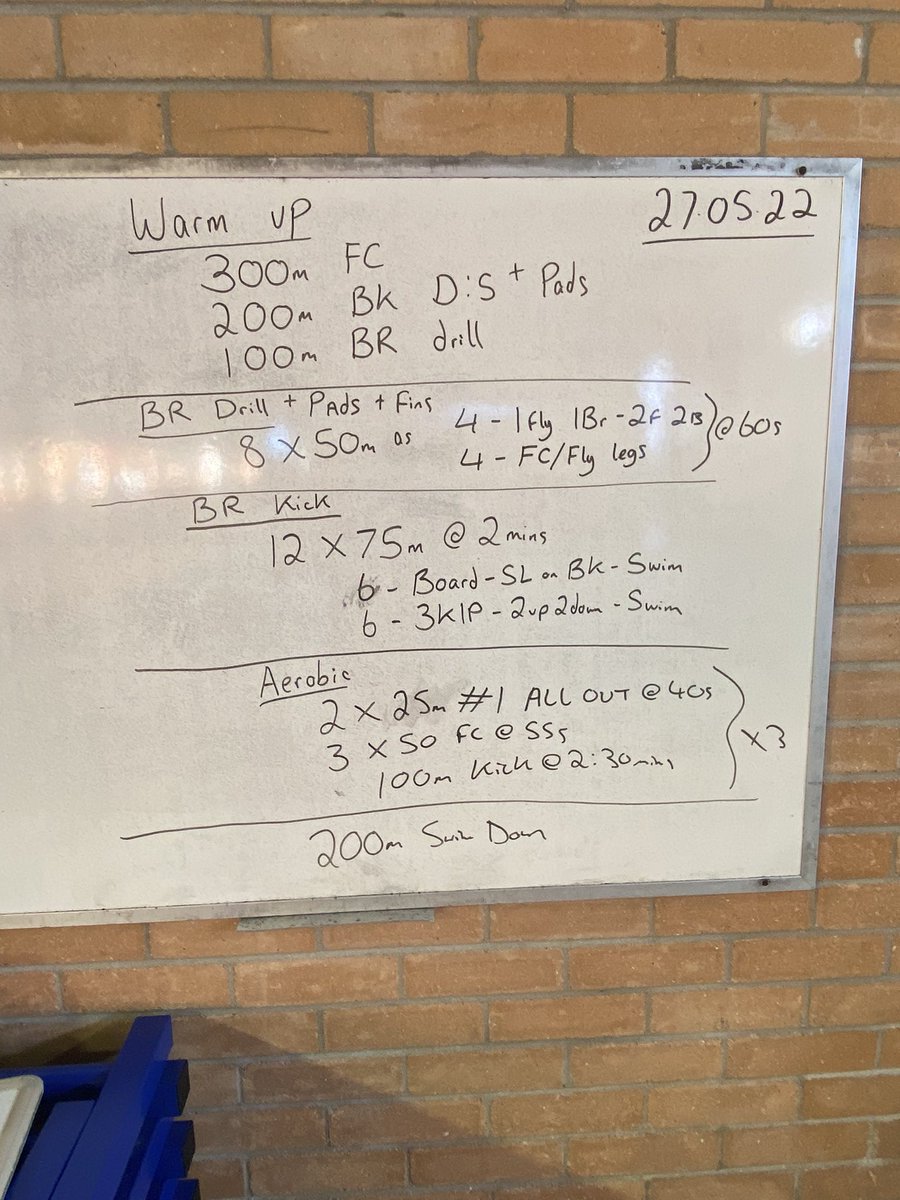 Warm up
27.05.22
300m FC
200m BK D:S + Pads
100m BR drill
BR Drill + PAds + Fins
8 x 50m as
4 - 1 fly 1Br - 2F 2B
4 - FC/Fly legs
@ 60s
BR Kick
12 x 75m @ 2 mins
6 - Board - SL on BK - Swim
6 - 3K1P - 2up 2down - Swim
Aerobic
2 x 25m #1 ALL OUT @ 40s
3 x 50 FC @ 55s
100m Kick @ 2:30mins
x3
200m Swim Down